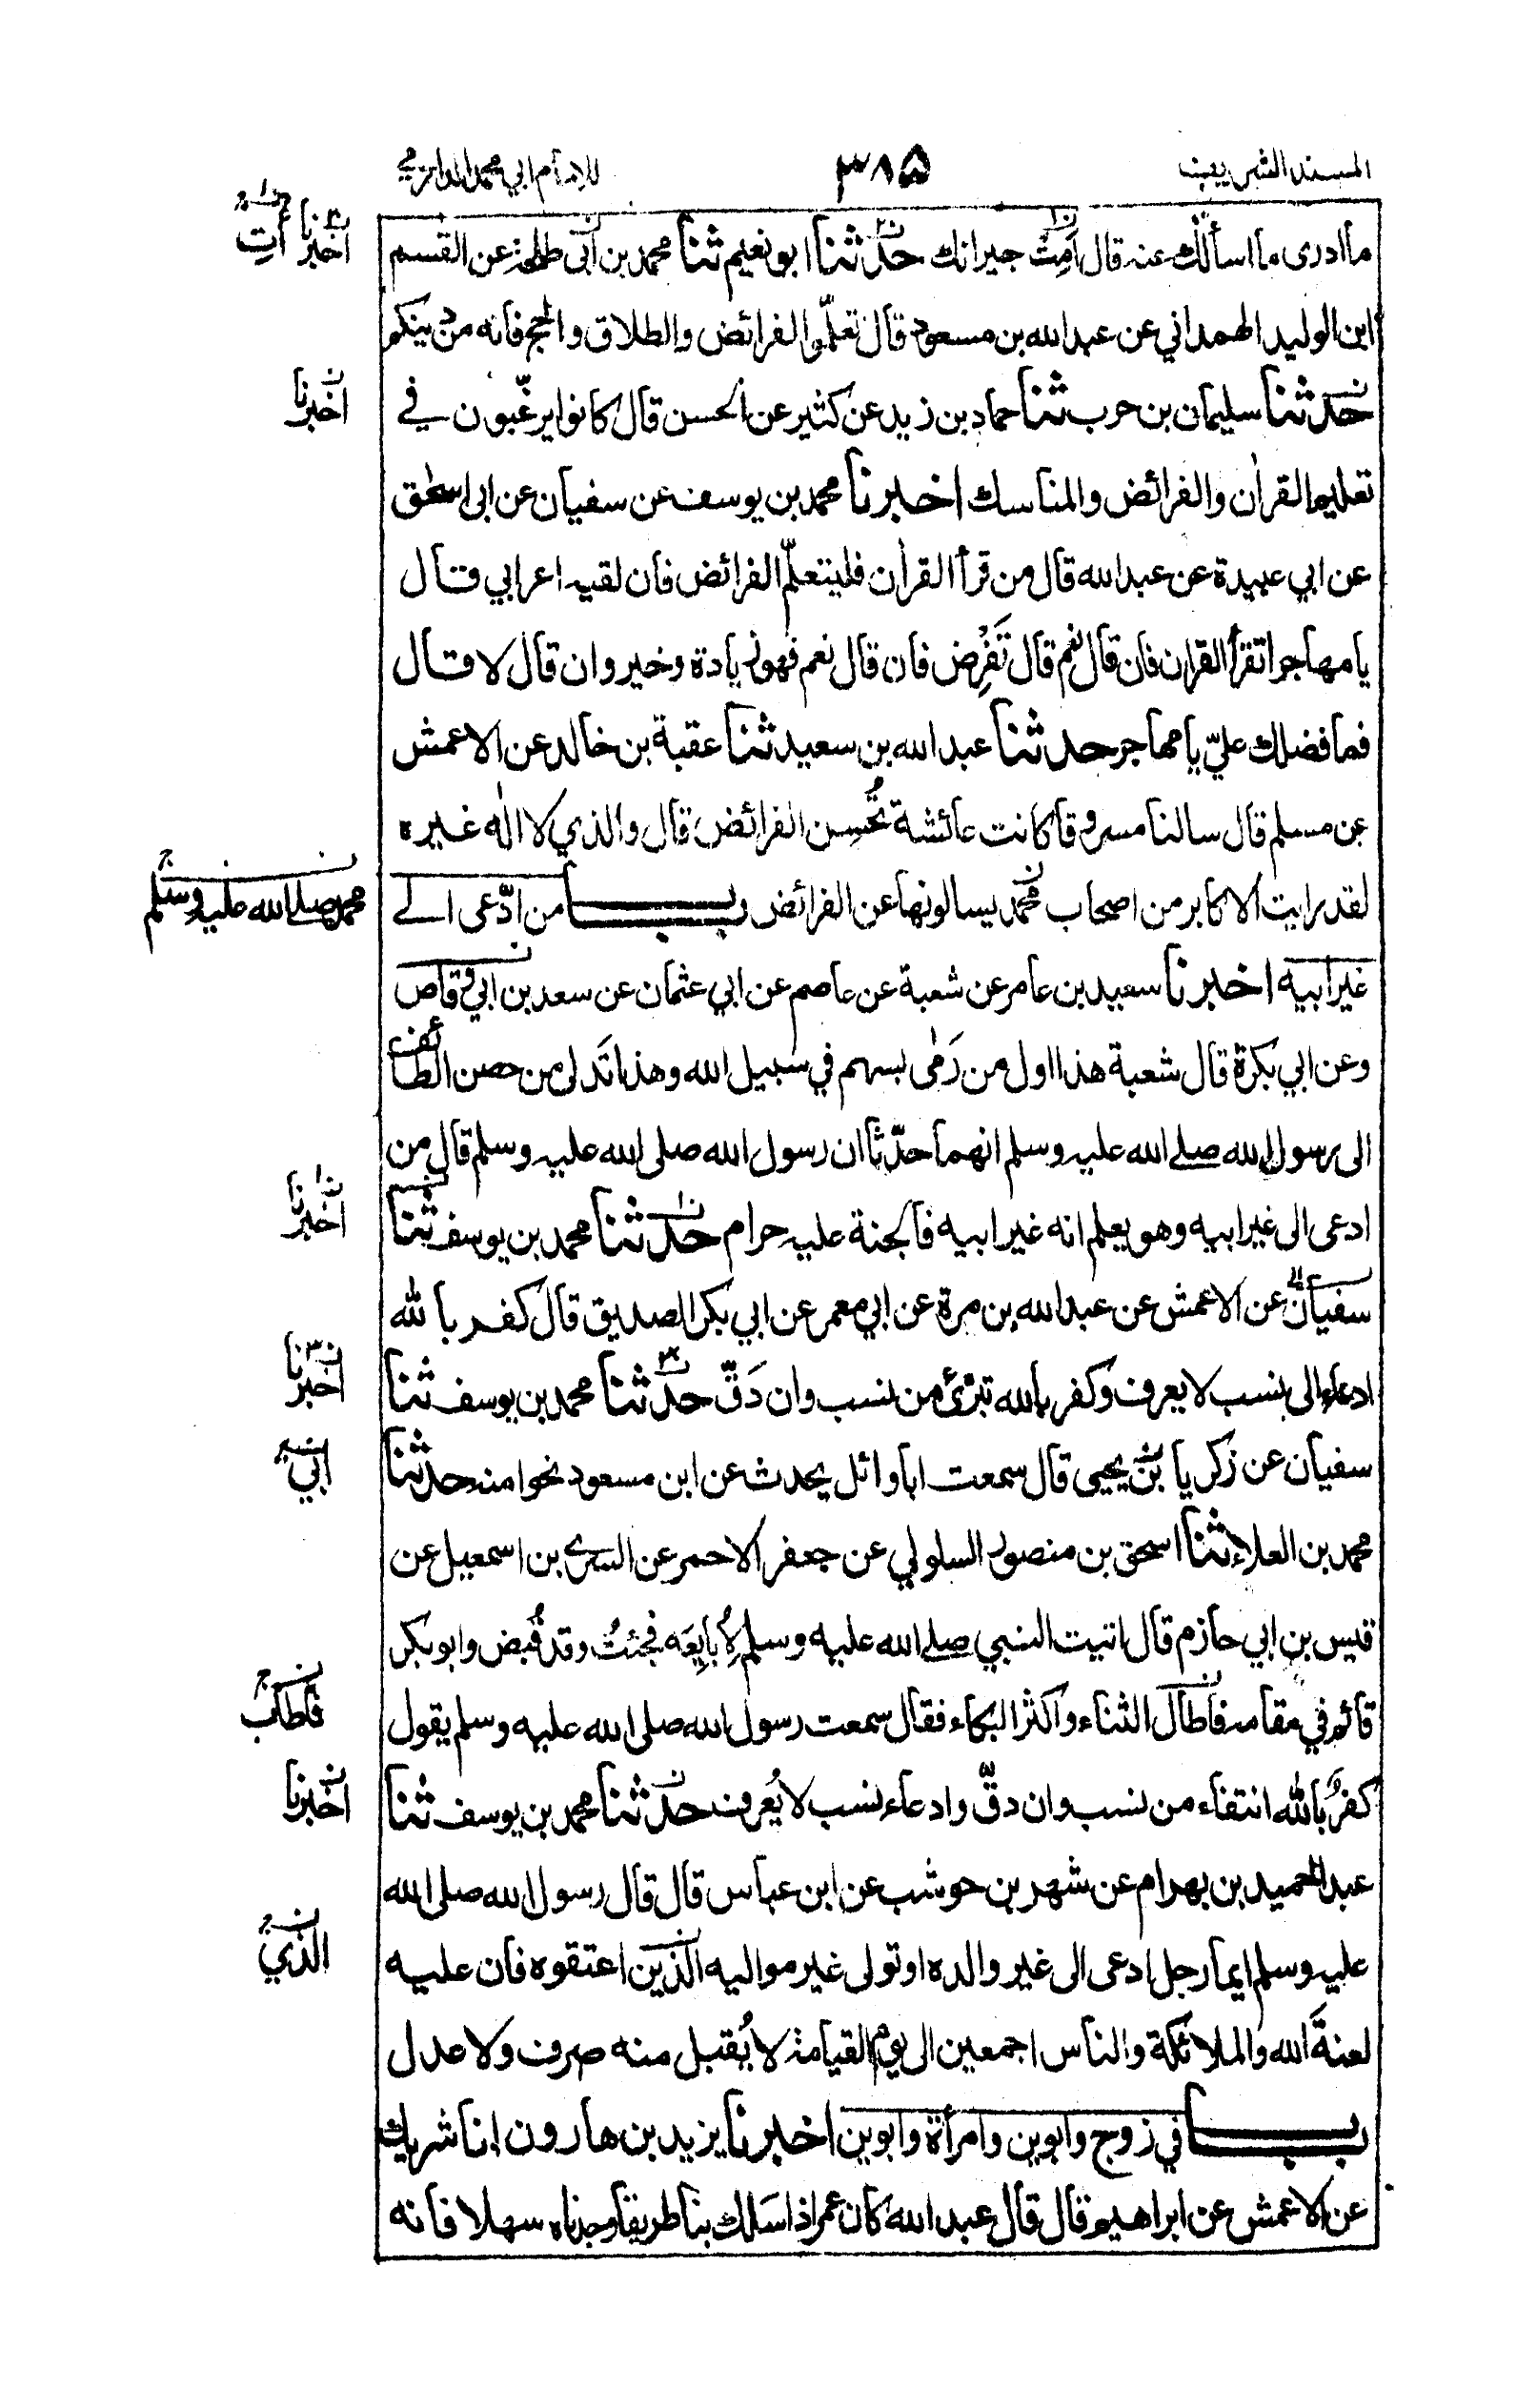 المسند الشريف ٣٨٥ للامام ابي محمد الدارمي
ما ادرى ما اسألك عنه قال اَمِتْ جيرانك حدثنا ابو نعيم ثنا محمد بن ابى طلحة عن القسم
ابن الوليد الهمداني عن عبد الله بن مسعود قال تعلّموا الفرائض والطلاق والحج فانه من دينكم
حدثنا سليمان بن حرب ثنا حماد بن زيد عن كثير عن الحسن قال كانوا يرغّبون في
تعليم القران والفرائض والمناسك اخبرنا محمد بن يوسف عن سفيان عن ابى اسحٰق
عن ابي عبيدة عن عبد الله قال من قرأ القراٰن فليتعلّم الفرائض فان لقيه اعرابي قال
يا مهاجر اتقرأ القران فان قال نعم قال تَفْرِض فان قال نعم فهو زيادة وخير وان قال لا قال
فما فضلك عليّ يا مهاجر حدثنا عبد الله بن سعيد ثنا عقبة بن خالد عن الاعمش
عن مسلم قال سالنا مسروقا كانت عائشة تُحسِن الفرائض قال والذي لا الٰه غيره
لقد رايت الاكابر من اصحاب محمد يسالونها عن الفرائض باب من ادّعى الى
غير ابيه اخبرنا سعيد بن عامر عن شعبة عن عاصم عن ابي عثمان عن سعد بن ابي وقاص
وعن ابي بكرة قال شعبة هذا اول من رَمٰى بسهم في سبيل الله وهذا تَدلى من حصن الطائف
الى رسول الله صلے الله عليه وسلم انهما حدّثا ان رسول الله صلى الله عليه وسلم قال من
ادعى الى غير ابيه وهو يعلم انه غير ابيه فالجنة عليه حرام حدثنا محمد بن يوسف ثنا
سفيان عن الاعمش عن عبد الله بن مرة عن ابي معمر عن ابي بكر الصديق قال كفر بالله
ادعاء الى نسب لا يعرف وكفر بالله تبرّئ من نسب وان دَقّ حدثنا محمد بن يوسف ثنا
سفيان عن زكريا بن يحيى قال سمعت ابا وائل يحدث عن ابن مسعود نحوا منه حدثنا
محمد بن العلاء ثنا اسحق بن منصور السلولي عن جعفر الاحمر عن السري بن اسمعيل عن
قيس بن ابي حازم قال اتيت النبي صلے الله عليه وسلم لِاُبايِعَه فجئتُ وقد قُبض وابو بكر
قائم في مقامه فاطال الثناء واكثر البكاء فقال سمعت رسول الله صلى الله عليه وسلم يقول
كفرٌ بالله انتفاء من نسب وان دقّ وادعاء نسب لا يُعرف حدثنا محمد بن يوسف ثنا
عبد الحميد بن بهرام عن شهر بن حوشب عن ابن عباس قال قال رسول الله صلى الله
عليه وسلم ايما رجل ادعى الى غير والده او تولى غير مواليه الذين اعتقوه فان عليه
لعنةَ الله والملائكة والناس اجمعين الى يوم القيامة لا يُقبل منه صرف ولا عدل
باب في زوج وابوين وامرأة وابوين اخبرنا يزيد بن هارون انا شريك
عن الاعمش عن ابراهيم قال قال عبد الله كان عمر اذا سَلك بنا طريقا وجدناه سهلا فانه
اخبرنا
اخبرنا
محمد صلے الله عليه وسلم
اخبرنا
اخبرنا
ابي
فاطاب
اخبرنا
الذي